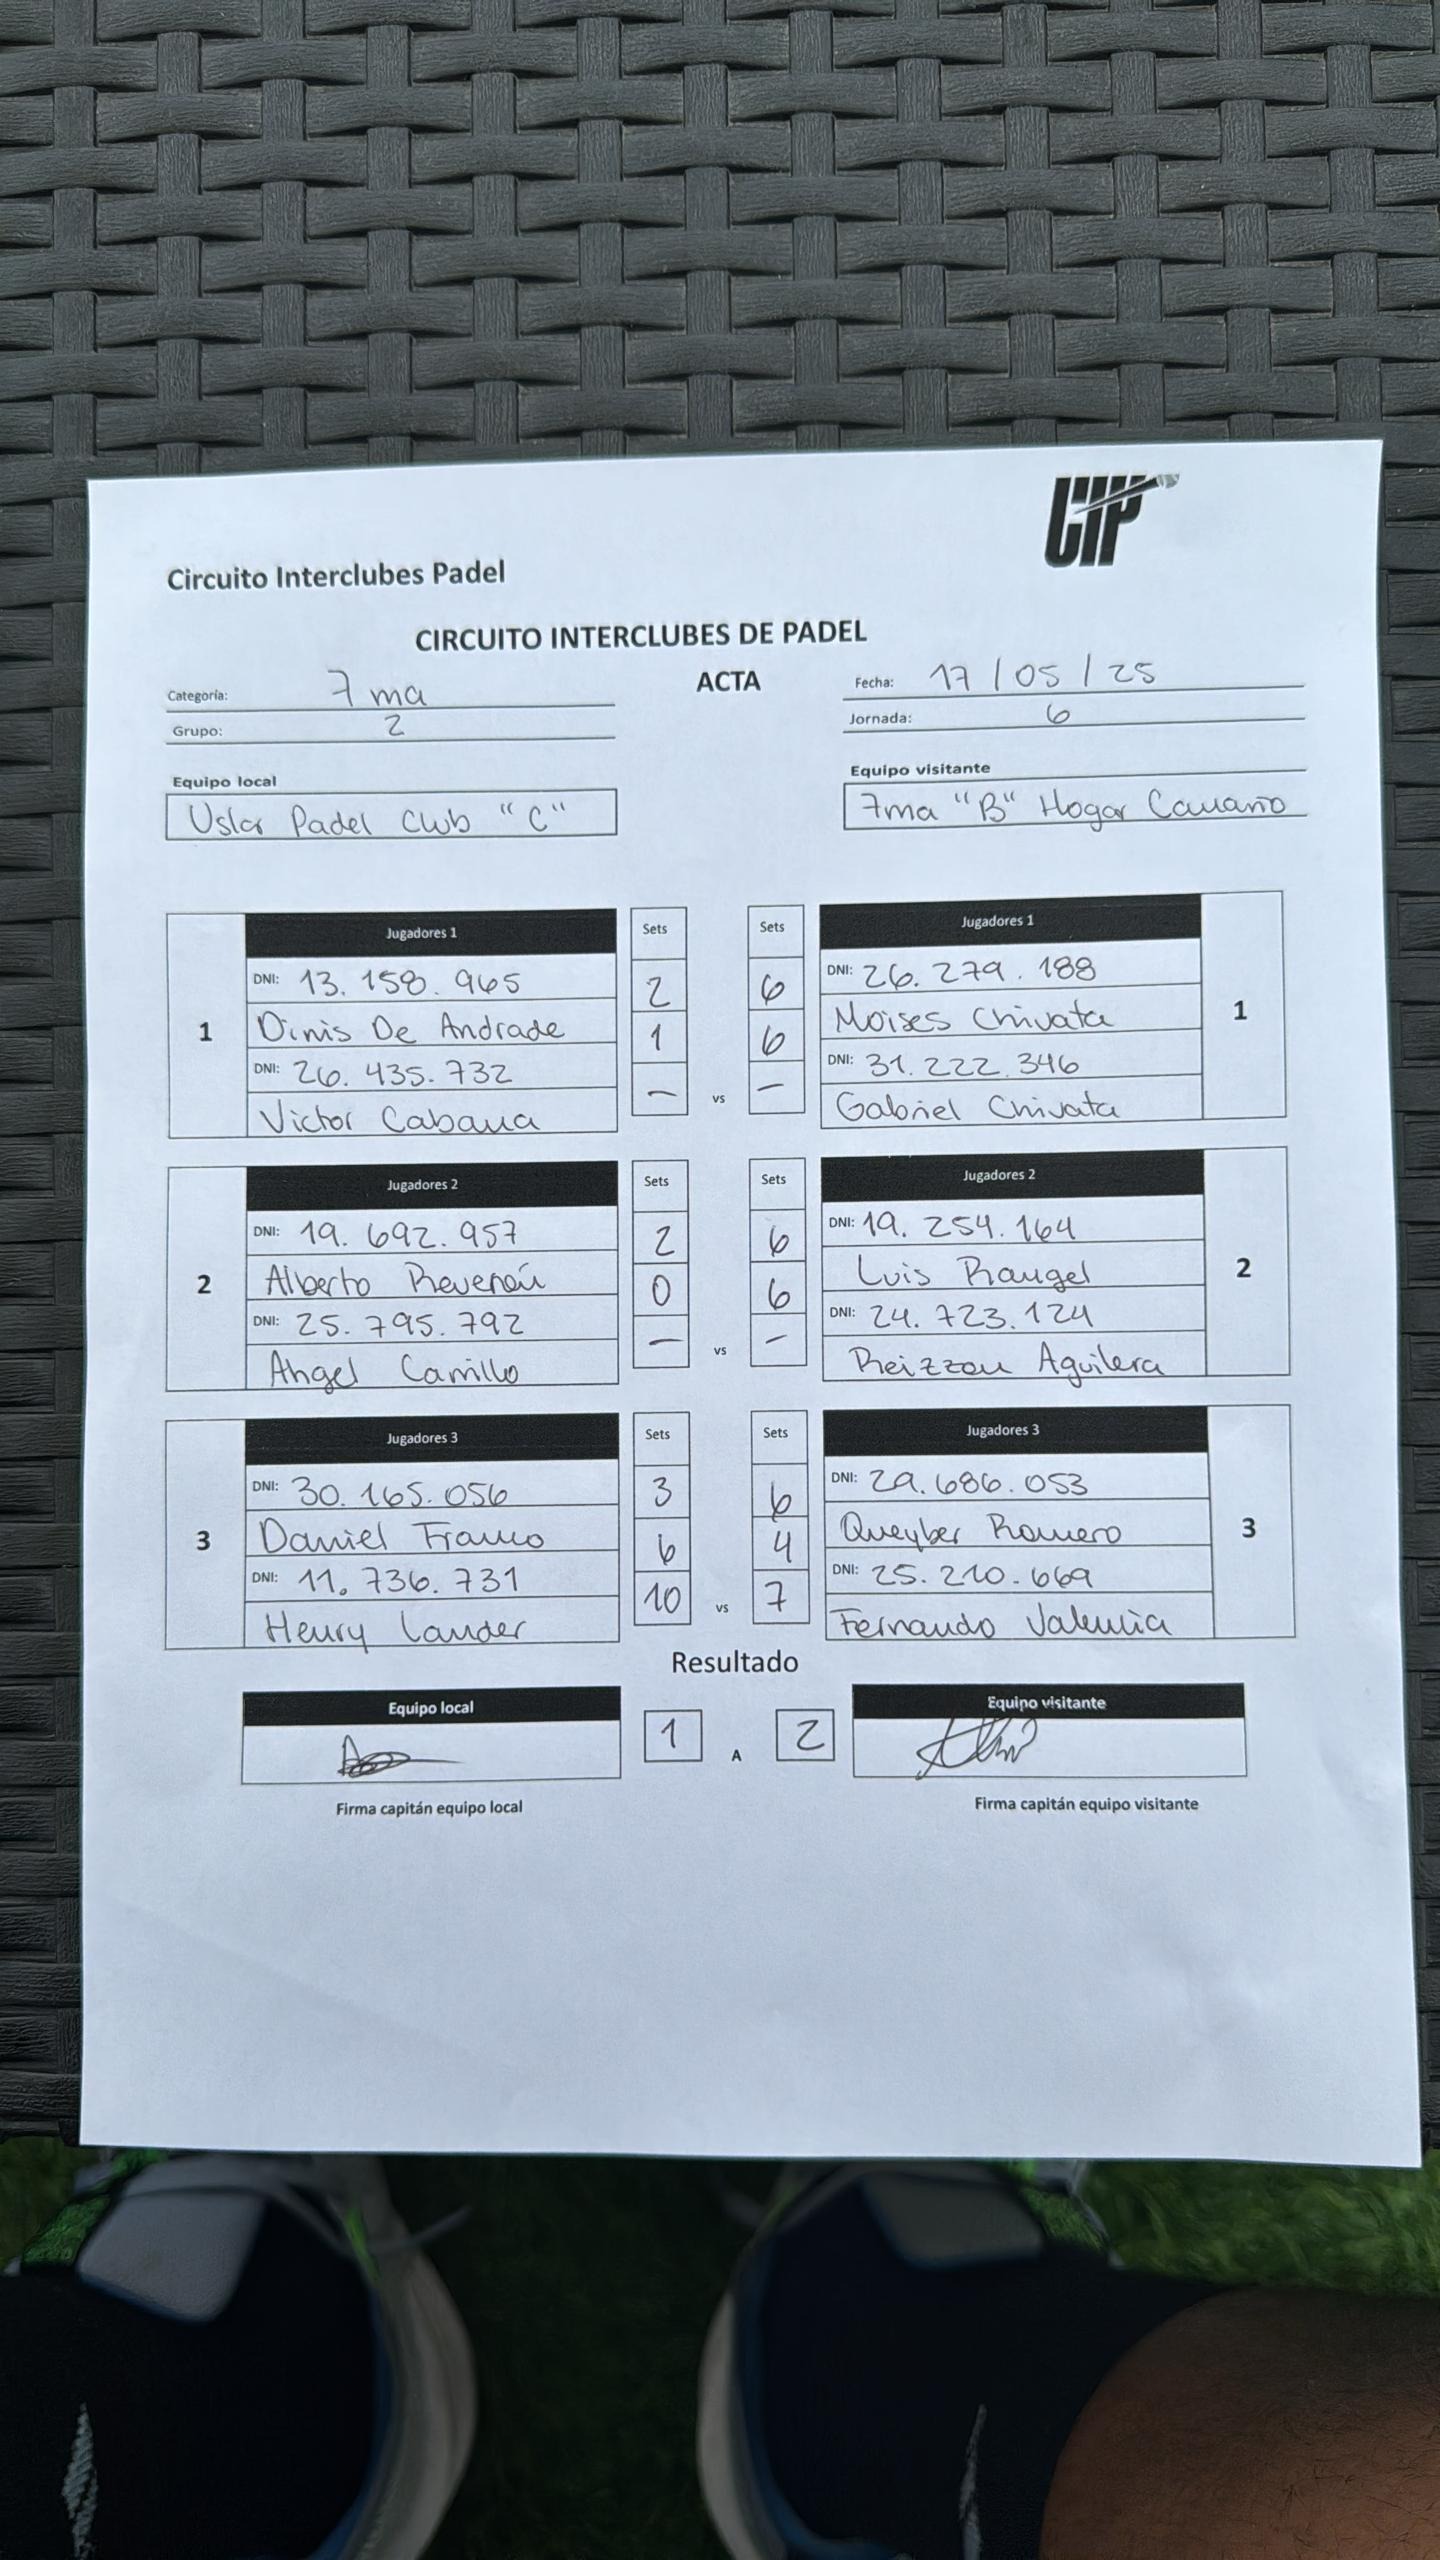 CIP
Circuito Interclubes Padel
CIRCUITO INTERCLUBES DE PADEL
ACTA
Categoría: 7ma
Fecha: 17/05/25
Grupo: 2
Jornada: 6
Equipo local
Equipo visitante
Uslar Padel Club "C"
7ma "B" Hogar Canario
1
Jugadores 1
Sets
Sets
Jugadores 1
1
DNI: 13.158.965
2
6
DNI: 26.279.188
Dinis De Andrade
1
6
Moises Chivata
DNI: 26.435.732
-
vs
-
DNI: 31.222.346
Victor Cabana
Gabriel Chivata
2
Jugadores 2
Sets
Sets
Jugadores 2
2
DNI: 19.692.957
2
6
DNI: 19.254.164
Alberto
0
6
Luis Rangel
DNI: 25.795.792
-
vs
-
DNI: 24.723.124
Angel Carrillo
Reizzon Aguilera
3
Jugadores 3
Sets
Sets
Jugadores 3
3
DNI: 30.165.056
3
6
DNI: 29.686.053
Daniel Franco
6
4
Queyber Romero
DNI: 11.736.731
10
vs
7
DNI: 25.210.669
Henry Lander
Fernando Valencia
Resultado
Equipo local
1
A
2
Equipo visitante
Firma capitán equipo local
Firma capitán equipo visitante